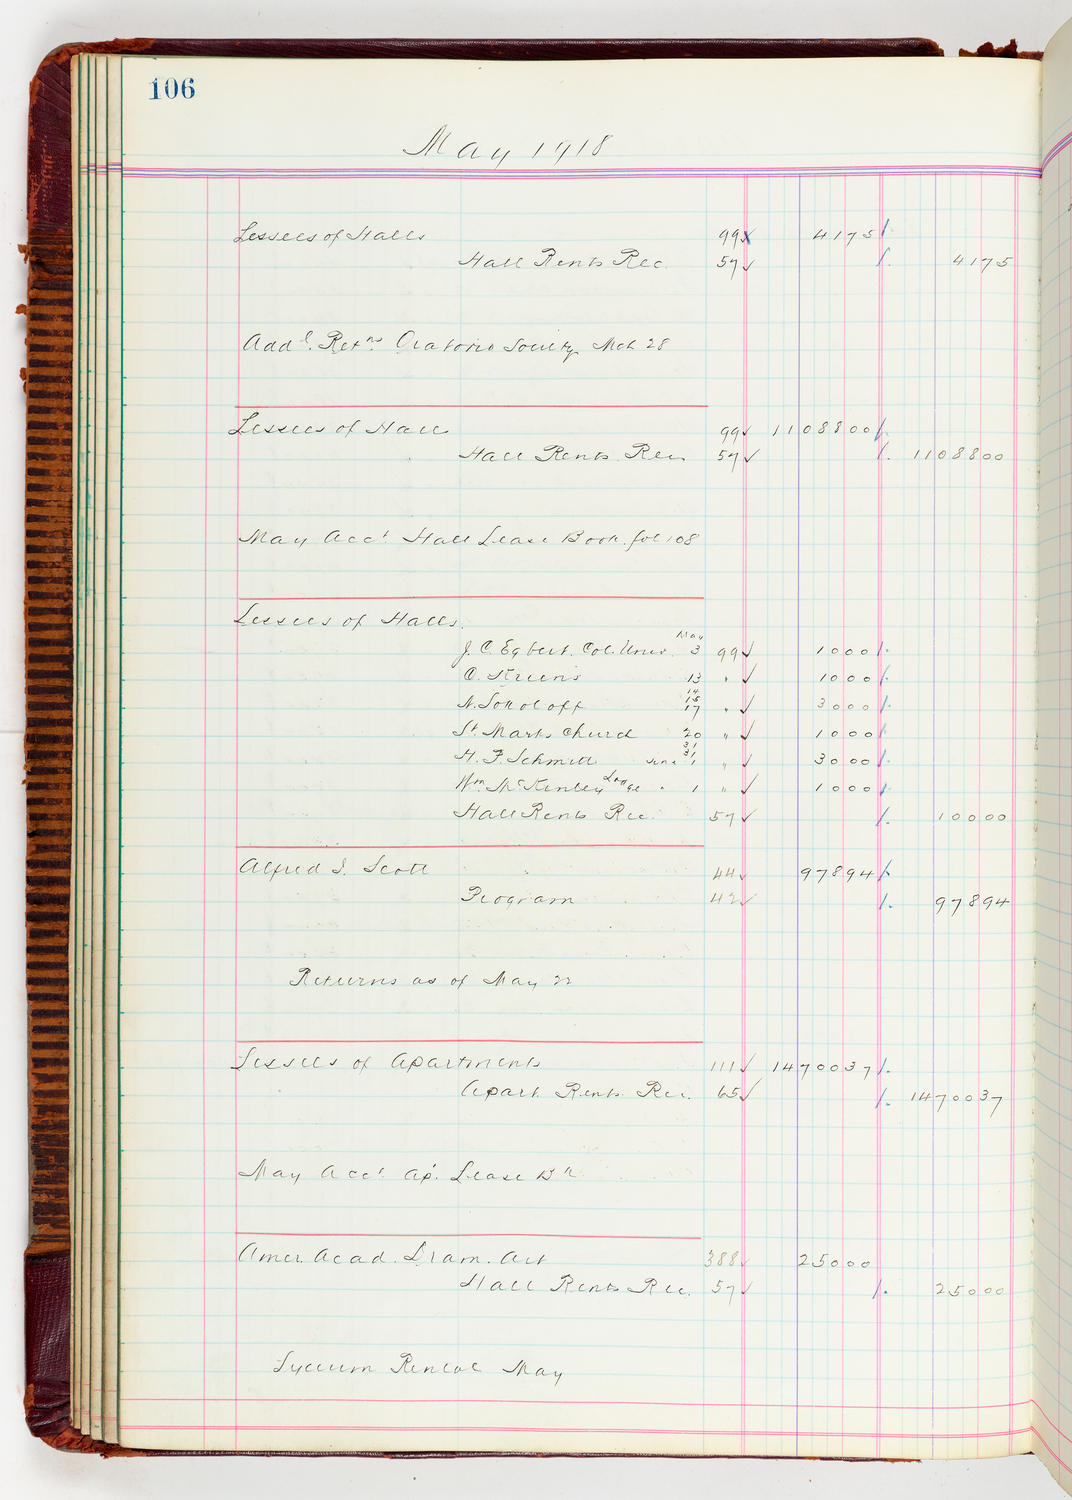 106
May 1918
Lessees of Halls 99 4175
Hall Rents Rec. 57 4175
Addl. Retns. Oratorio Society Mch 28
Lessees of Hall 99 1108800
Hall Rents Rec 57 1108800
May Acct Hall Lease Book fol 108
Lessees of Halls.
May
J. C. Egbert. Col. Univ. 3 99 1000
O. 13 " 1000
14
15
N. Sokoloff 17 " 3000
St. Marks Church 20 " 1000
31
31
H. F. Schmitt June 1 " 3000
Wm McKinley Lodge " 1 " 1000
Hall Rents Rec. 57 10000
Alfred I. Scott 44 97894
Program 42 97894
Returns as of May 22
Lessees of Apartments 111 1470037
Apart. Rents Rec. 65 1470037
May Acct. Ap. Lease Bk
Amer. Acad. Dram. Art 388 25000
Hall Rents Rec. 57 25000
Lyceum Rental May